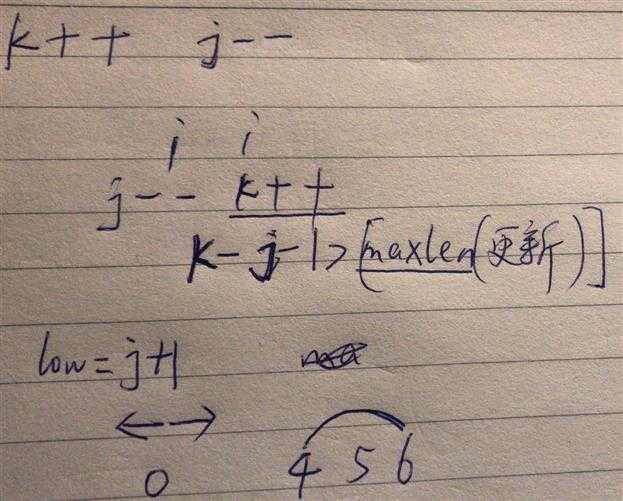 k++ j--
j i
j-- k++
k-j-1>[maxlen(更新)]
low=j+1
0 4 5 6